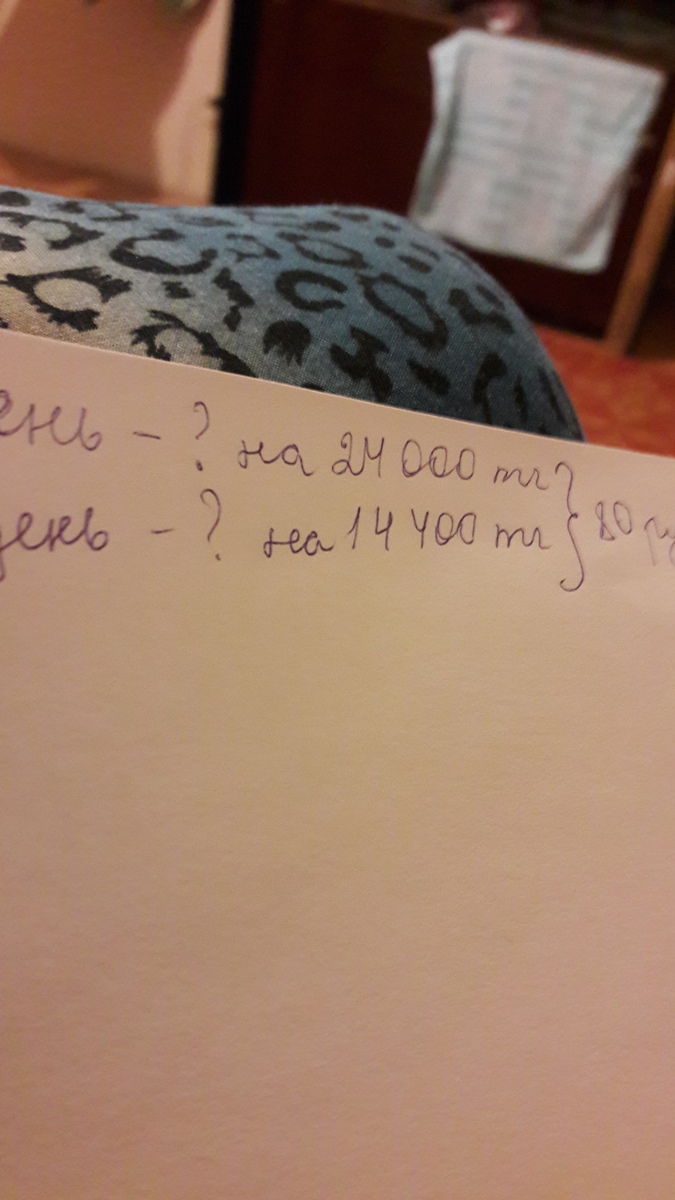 ень - ? на 24 000 тг
день - ? на 14 400 тг } 80 ру